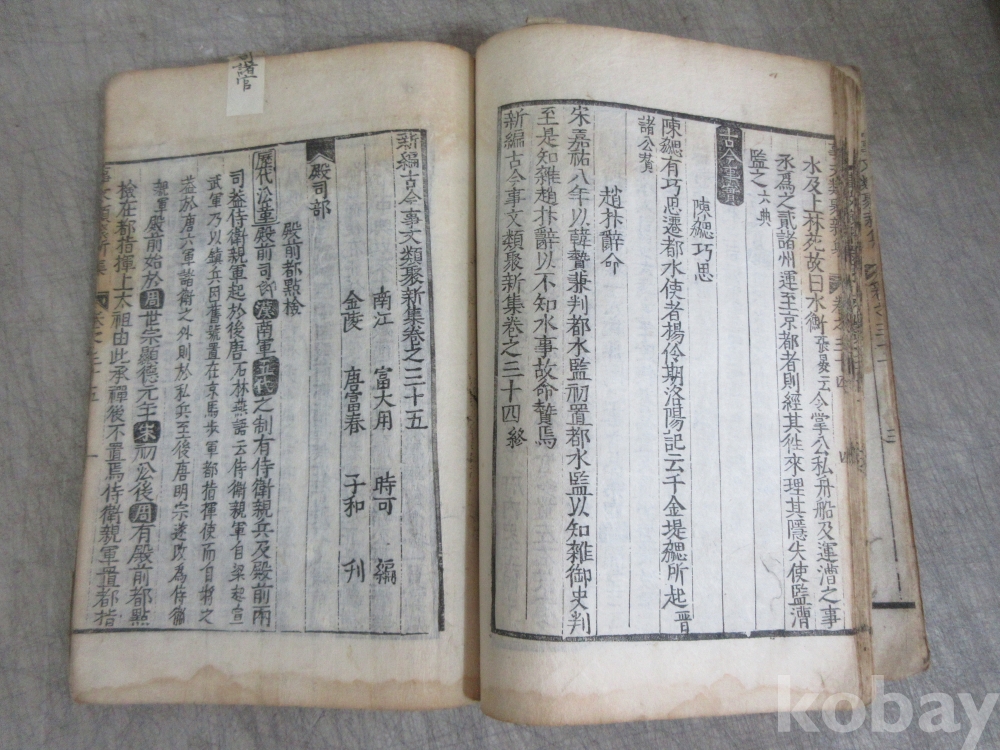 水及上林死故曰水衡張晏云今掌公私舟船及運漕之事
丞為之貳諸州運至京都者則經其徃來理其隱失使監漕
監之六典
古今事實
陳勰巧思
陳勰有巧思遷都水使者楊佺期洛陽記云千金堤勰所起晋
諸公賛
趙抃辭命
宋嘉祐八年以韓贄兼判都水監初置都水監以知雜御史判
至是知雜趙抃辭以不知水事故命贄焉
新編古今事文類聚新集卷之三十四終
新編古今事文類聚新集卷之三十五
南江 富大用 時可 編
金陵 唐富春 子和 刋
殿司部
殿前都點檢
歷代沿革殿前司 漢南軍五代之制有侍衛親兵及殿前兩
司益侍衛親軍起於後唐石林燕語云侍衛親軍自梁起宣
武軍乃以鎮兵因舊號置在京馬步軍都指揮使而自將之
益於唐六軍諸衛之外則於私兵至後唐明宗遂改為侍衛
親軍 殿前始於周世宗顯德元年宋初公後周有殿前都點
檢在都指揮上太祖由此承禪後不置焉侍衛親軍置都指
諸官
kobay